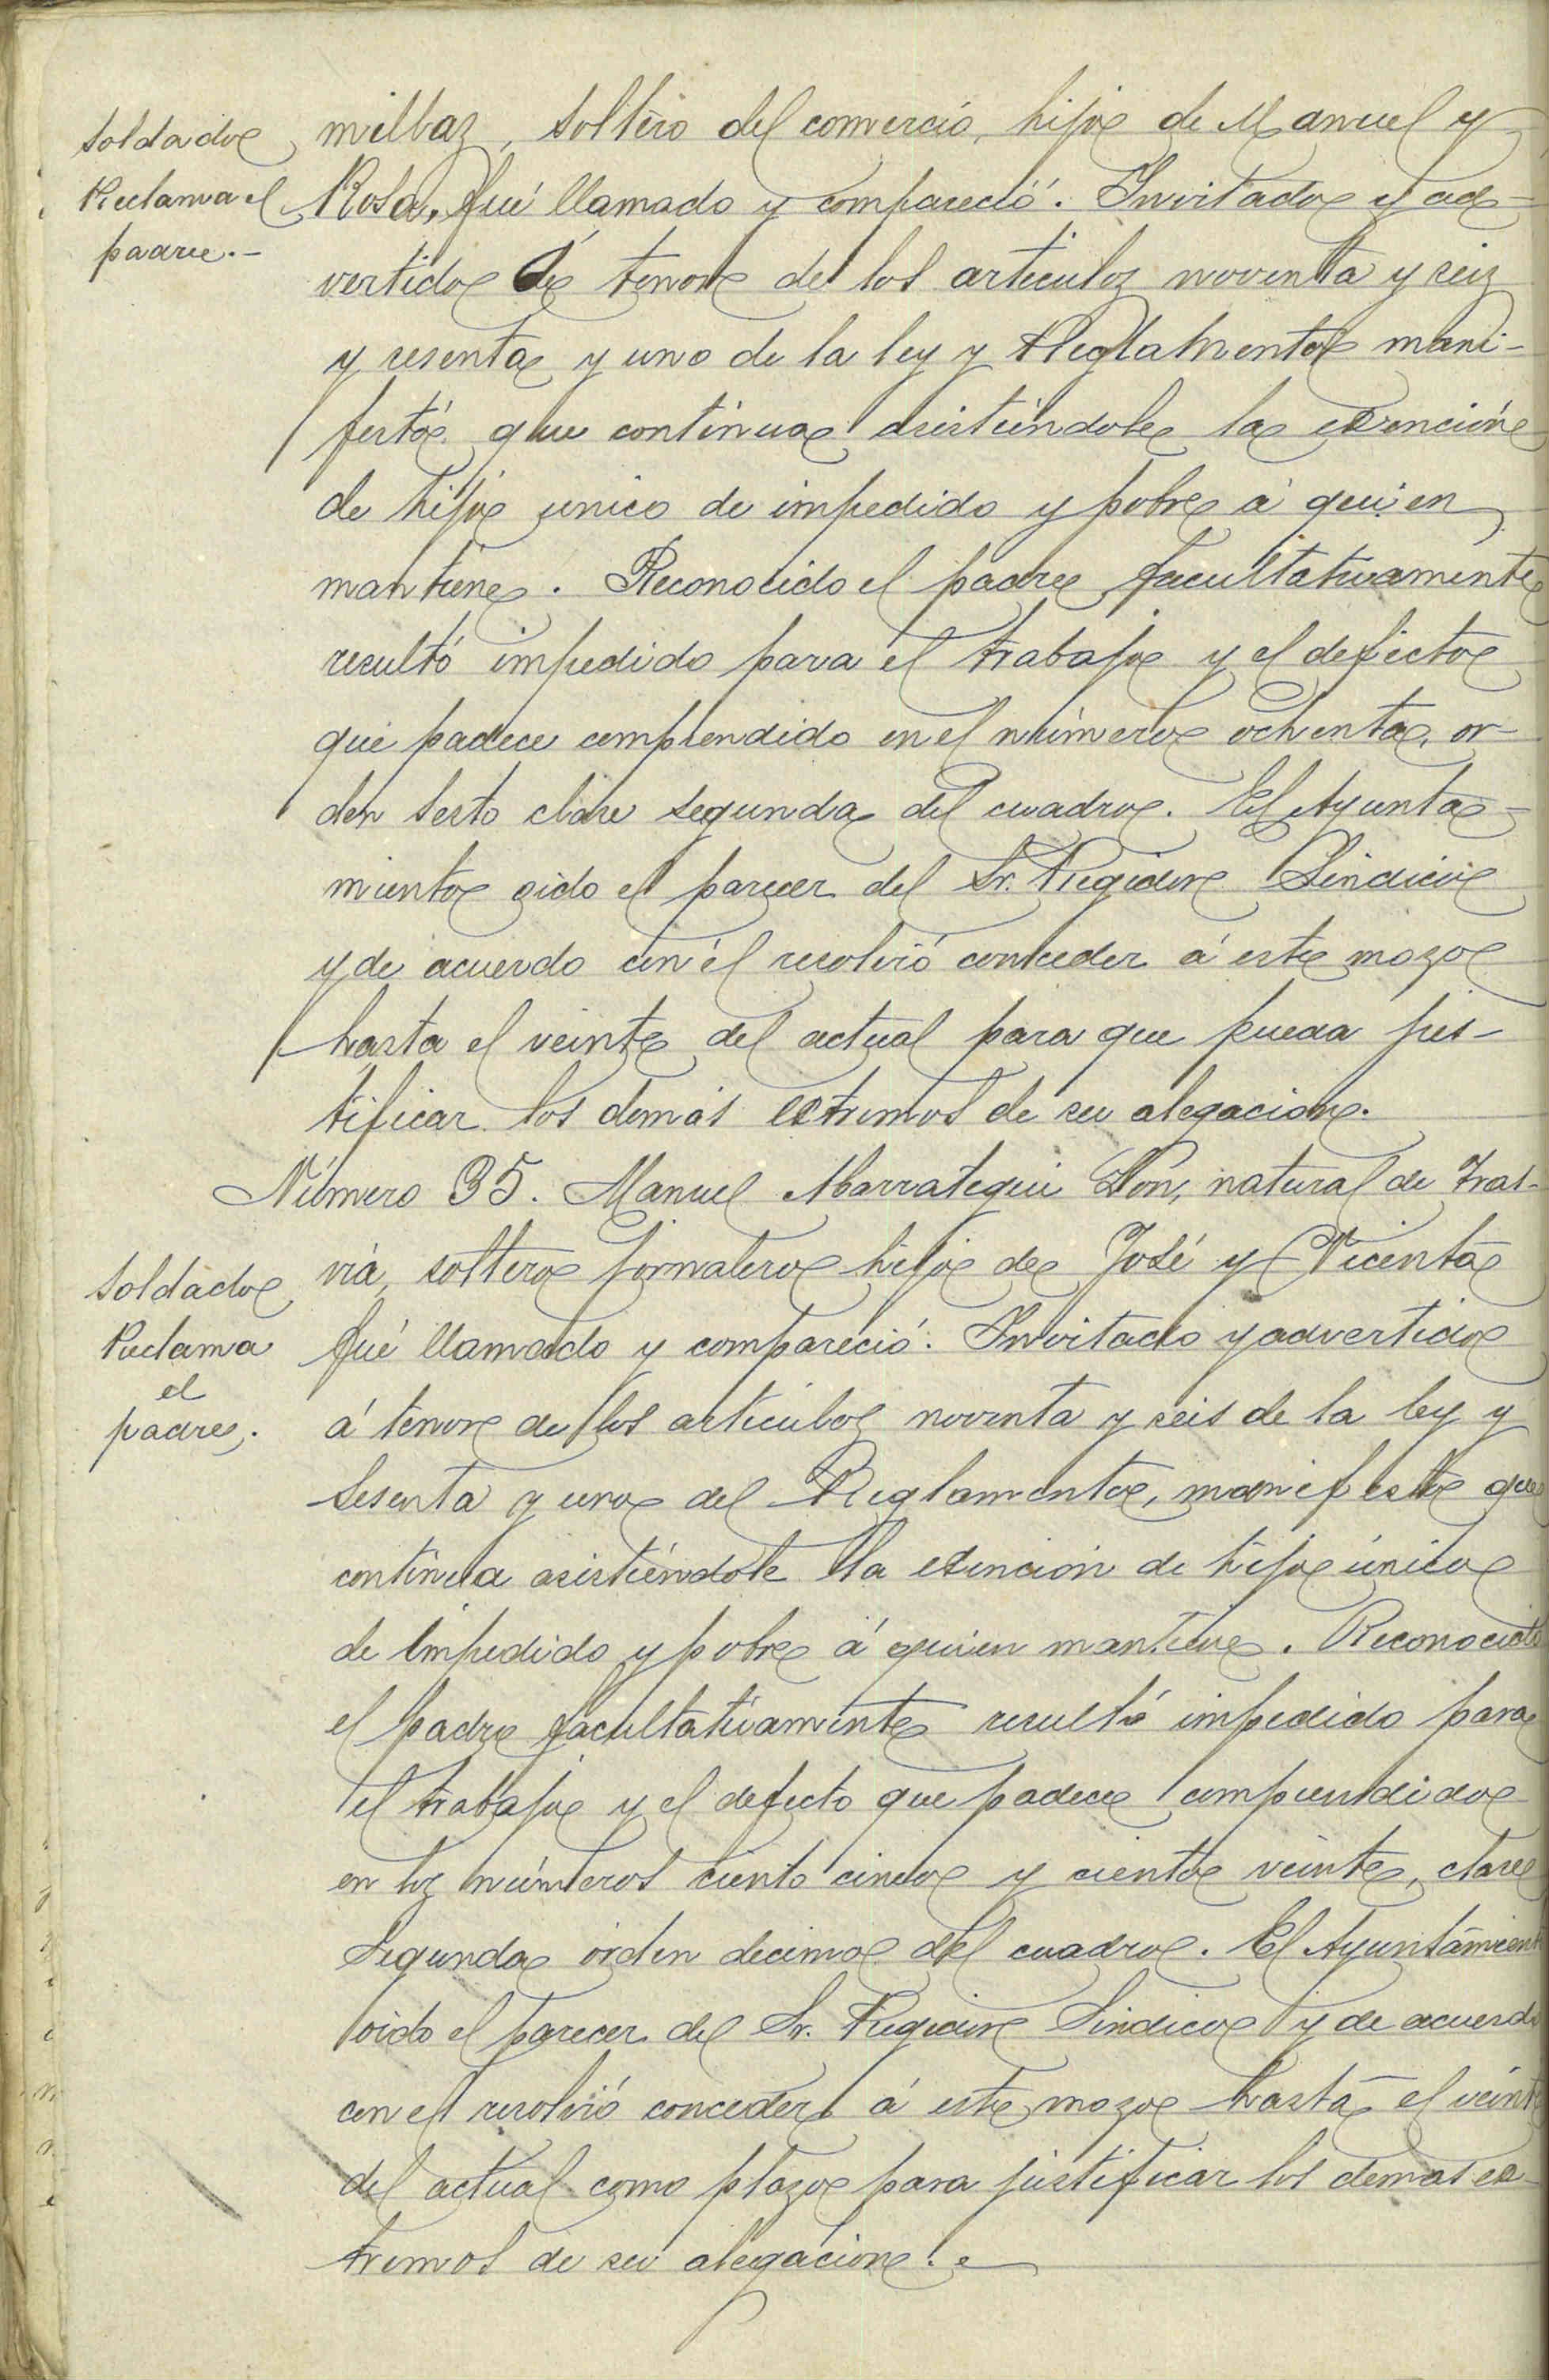 soldado
Reclama el
padre.-
millaz, soltero del comercio, hijo de Manuel y
Rosa, fué llamado y compareció. Invitado y ad-
vertido á tenor de los artículos noventa y seis
y sesenta y uno de la ley y Reglamento mani-
festó que continua asistiéndole la exención
de hijo unico de impedido y pobre á quien
mantiene. Reconocido el padre facultativamente
resultó impedido para el trabajo y el defecto
que padece comprendido en el número ochenta, or-
den sesto clase segunda del cuadro. El Ayunta-
miento oido el parecer del Sr. Regidor Sindico
y de acuerdo con él resolvió conceder á este mozo
hasta el veinte del actual para que pueda jus-
tificar los demás extremos de su alegacion.
Número 35. Manuel Abarrategui Lon, natural de Tras-
soldado
Reclama
el
padre.
via, soltero jornalero hijo de José y Vicenta
fué llamado y compareció. Invitado y advertido
á tenor de los artículos noventa y seis de la ley y
sesenta y uno del Reglamento, manifestó que
continua asistiéndole la exención de hijo único
de impedido y pobre á quien mantiene. Reconocido
el padre facultativamente resultó impedido para
el trabajo y el defecto que padece comprendido
en los números ciento cinco y ciento veinte, clase
segunda órden decimo del cuadro. El Ayuntamiento
oido el parecer del Sr. Regidor Sindico y de acuerdo
con el resolvió conceder á este mozo hasta el veinte
del actual como plazo para justificar los demas ex-
tremos de su alegacion.